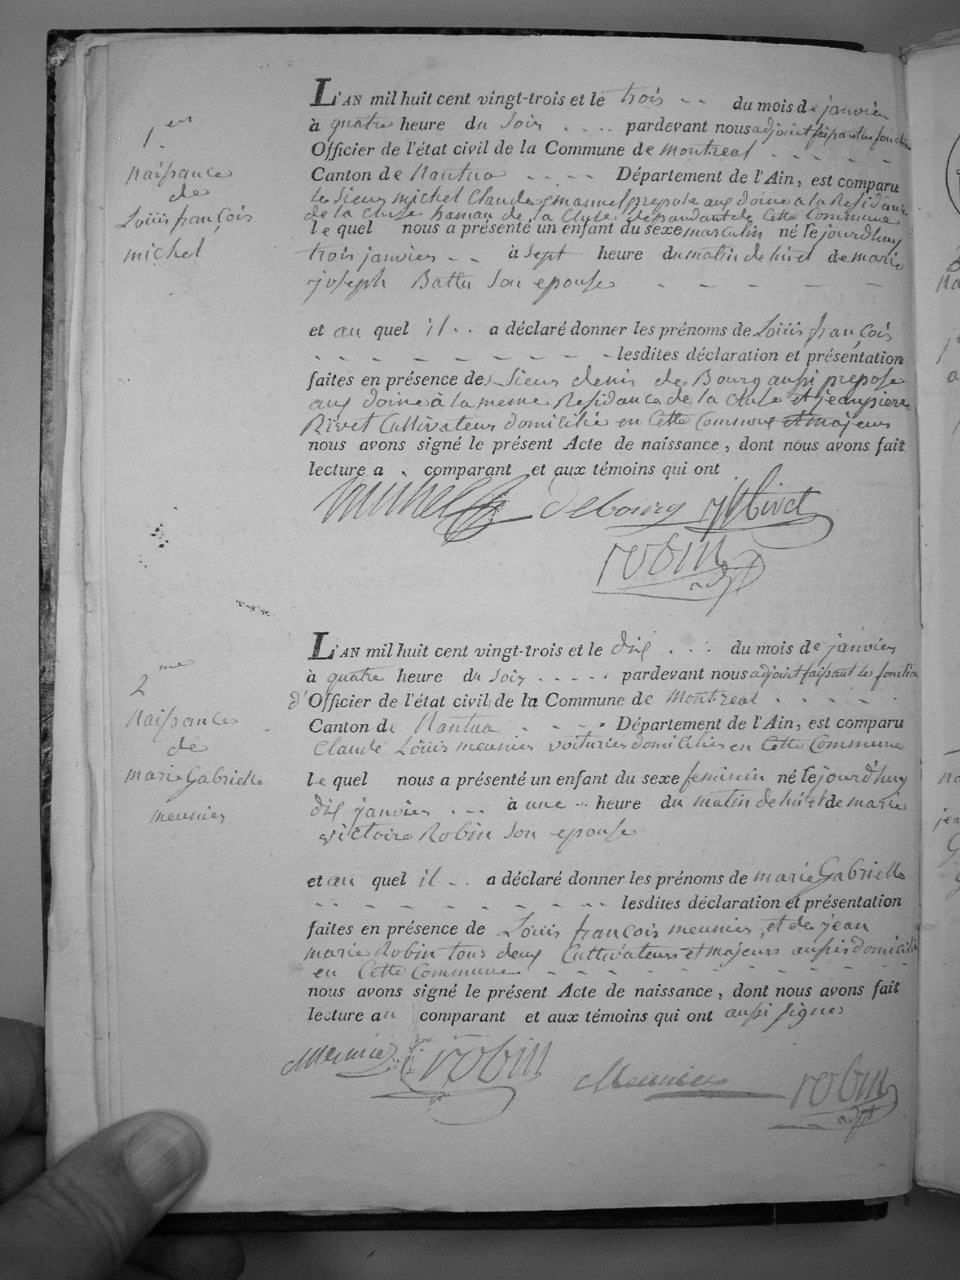 1.er
naissance
de
Loüis françois
michel
L'AN mil huit cent vingt-trois et le trois du mois de janvier
à quatre heure du soir pardevant nous adjoint faisant les fonctions
Officier de l'état civil de la Commune de montreal
Canton de Nantua Département de l'Ain, est comparu
Le Sieur michel Claude Emanuel preposé aux doine a la Residance
de la Cluse hamau de la Cluse dépandant de Cette Commune
le quel nous a présenté un enfant du sexe masculin né le jourd'huy
trois janvier à sept heure du matin de lui et de marie
joseph Battu son epouse
et au quel il a déclaré donner les prénoms de Loüis françois
lesdites déclaration et présentation
faites en présence des Sieur denis de Bourg aussi preposé
aux doine à la meme Residance de la Cluse et jean piere
Rivet Cultivateur domicilié en Cette Commune et majeurs
nous avons signé le présent Acte de naissance, dont nous avons fait
lecture a comparant et aux témoins qui ont
michel Debourg Rivet
robin
adjt
2.me
Naissance
de
marie Gabrielle
meunier
L'AN mil huit cent vingt-trois et le dix du mois de janvier
à quatre heure du soir pardevant nous adjoint faisant les fonction
d'Officier de l'état civil de la Commune de Montreal
Canton de Nantua Département de l'Ain, est comparu
Claude Loüis meunier voiturier domicilié en Cette Commune
le quel nous a présenté un enfant du sexe feminin né le jourd'huy
dix janvier à une heure du matin de lui et de marie
victoire Robin son epouse
et au quel il a déclaré donner les prénoms de marie Gabrielle
lesdites déclaration et présentation
faites en présence de Loüis françois meunier, et de jean
marie Robin tous deux Cultivateurs et majeurs aussi domicilié
en Cette Commune
nous avons signé le présent Acte de naissance, dont nous avons fait
lecture au comparant et aux témoins qui ont aussi signés
Meunier robin Meunier robin
adjt